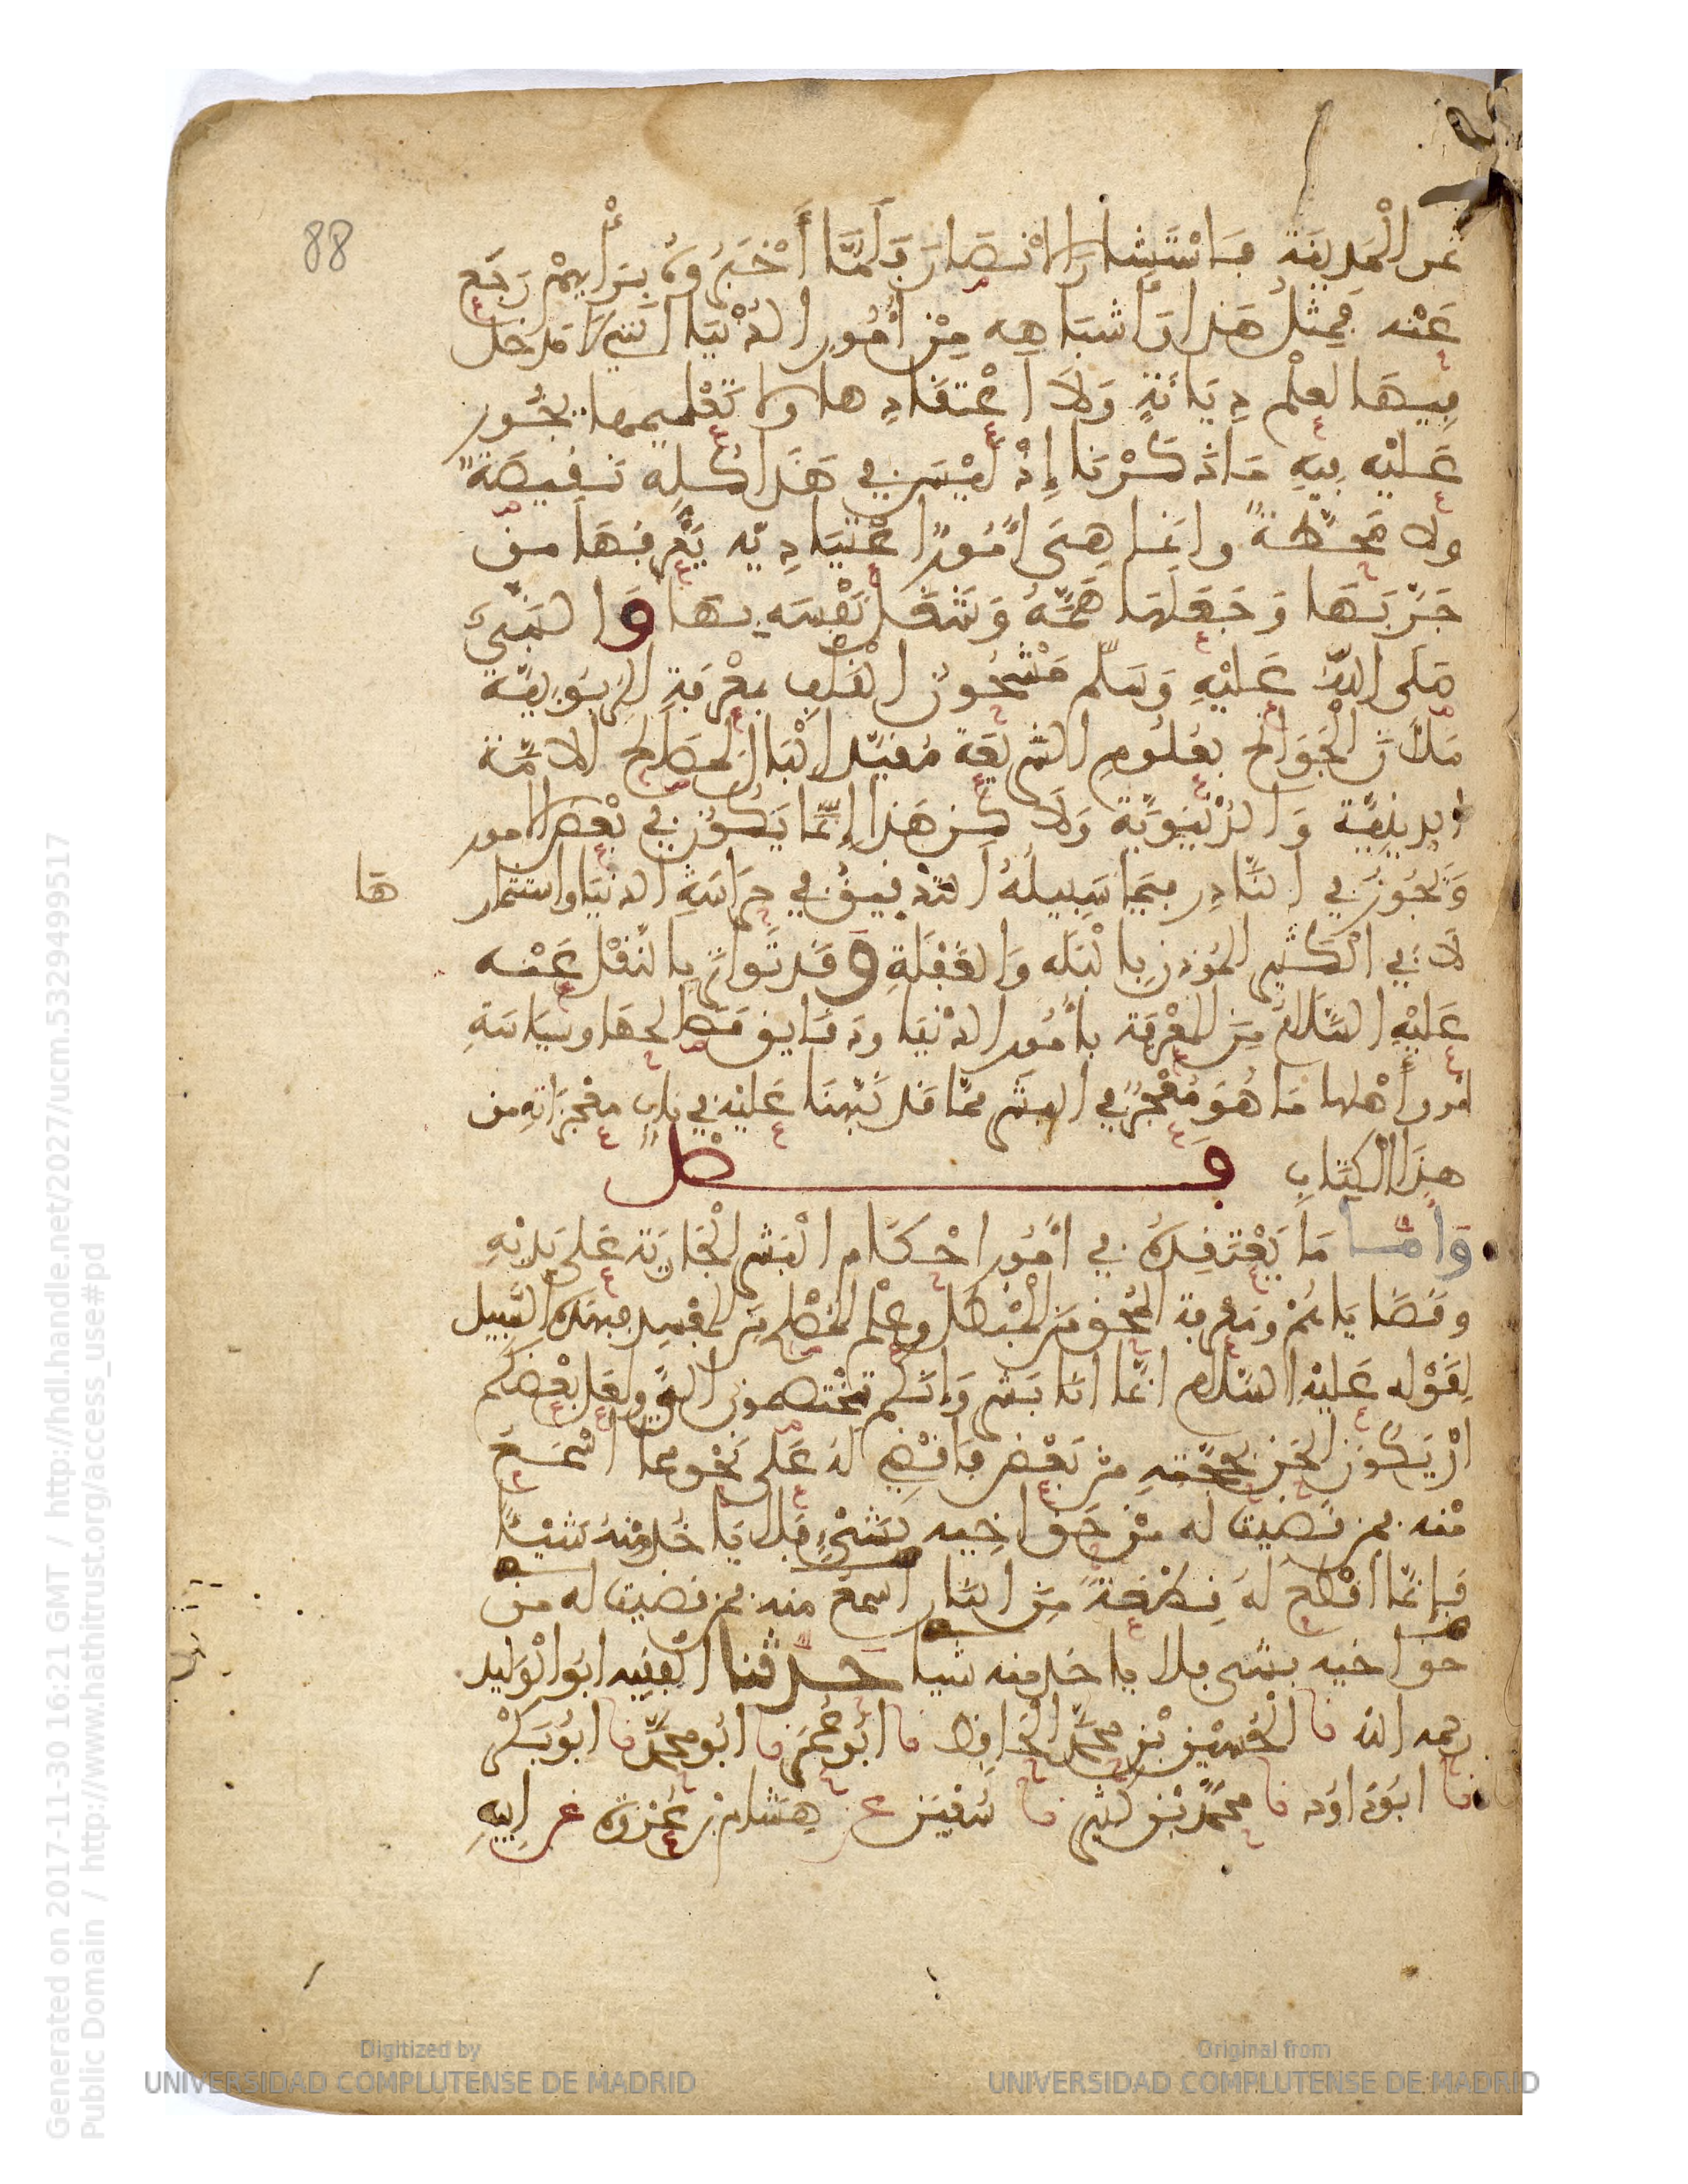 88
تمر الْمَدِينَةِ فَاسْتَشَارَ الانْصَارَ فَلَمَّا أَخْبَرُوهُ بِرَأْيِهِمْ رَجَع
عَنْه فَمِثْلُ هَذَا وَأَشْبَاهِهِ مِنْ أُمُورِ الدُّنْيَا الَّتِي لَا مَدْخَل
فِيهَا لِعِلْمِ دِيَانَةٍ وَلَا اعْتِقَادِهَا وَلَا تَعْلِيمِهَا يَجُوز
عَلَيْهِ فِيهِ مَا ذَكَرْنَا إِذْ لَيْسَ فِي هَذَا كُلِّهِ نَقِيصَةٌ
وَلَا مَحَطَّةٌ وَإِنَّمَا هِيَ أُمُورٌ اعْتِيَادِيَّه يَعْرِفُهَا مَن
جَرَّبَهَا وَجَعَلَهَا هَمَّهُ وَشَغَلَ نَفْسَه بِهَا وَالنَّبِيُّ
صَلَّى اللَّهُ عَلَيْهِ وَسَلَّم مَشْحُونُ الْقَلْبِ بِمَعْرِفَةِ الرُّبُوبِيَّة
مَلْآنُ الْجَوَانِحِ بِعُلُومِ الشَّرِيعَةِ مُقَيَّدُ الْبَالِ بِمَصَالِحِ الأمَّة
الدِّينِيَّة وَالدُّنْيَوِيَّة وَلَاكِن هَذَا إِنَّمَا يَكُونُ فِي بَعْضِ الامور
وَيَجُوزُ فِي النَّادِرِ فِيمَا سَبِيلُهُ التَّدْقِيقُ فِي حِرَاسَةِ الدنْيَا واستثمار
هَا
لَا فِي الْكَثِيرِ الْمُؤذِنِ بِالْبَلَه وَالْغَفْلَةِ وَقَد تَوَاتَرَ بِالنَّقْلِ عَنْه
عَلَيْهِ السَّلَامُ مِنَ الْمَعْرِفَة بِأمُورِ الدُّنْيَا وَدَقَايِق مَصَالِحِهَا وَسِيَاسَةِ
فرق أَهْلِهَا مَا هُوَ مُعْجِزٌ فِي الْبَشَرِ مِمَّا قَد نَبَّهْنَا عَلَيْهِ فِي بَابِ مُعْجِزَاتِهِ مِن
هذَا الْكِتَابِ فَصْل
وَأَمَّا مَا يَعْتَقِدُهُ فِي أُمُورِ احْكَامِ الْبَشَرِ الْجَارِيَة عَلَى يَدَيْهِ
وَقَضَايَاهُمْ وَمَعْرِفَةِ الْمُحِقِّ مِنَ الْمُبْطِلِ وَعِلْمِ الْمُصْلِحِ مِنَ الْمُفْسِدِ فَبِهَذِهِ السَّبِيل
لِقَوْلِه عَلَيْهِ السَّلَام إنَّمَا انَا بَشَرٌ وَإِنَّكُم تَخْتَصِمُونَ إلَيَّ وَلَعَلَّ بَعْضَكُم
انْ يَكُونَ الْحَنَ بِحُجَّتِهِ مِنْ بَعْضٍ فَاقْضِي لَهُ عَلَى نَحْوٍ مِمَّا اسْمَع
مِنْه فَمَن قَضَيْتُ لَه مِنْ حَقِّ اخِيه بِشَيْءٍ فَلا يَاخُذْ مِنْهُ شَيْئًا
فَإنَّمَا اقْطَعُ لَهُ قِطْعَةً مِنَ النَّار اسمع منه فمن قضيت له من
حق اخيه بشى فلا ياخذ منه شيا حَدَّثَنا الْفَقِيه ابُو الْوَلِيد
رحمه الله نا الْحُسَيْن بْن مُحَمَّد الْحَافِظ نا أَبُو عُمَرَ نا ابُو مُحَمَّد نا ابُو بَكْر
نا ابُو دَاوُد نا مُحَمَّد بْن كَثِير نا سُفْيَن عن هِشَام بْن عُرْوَة عن ابِيهِ